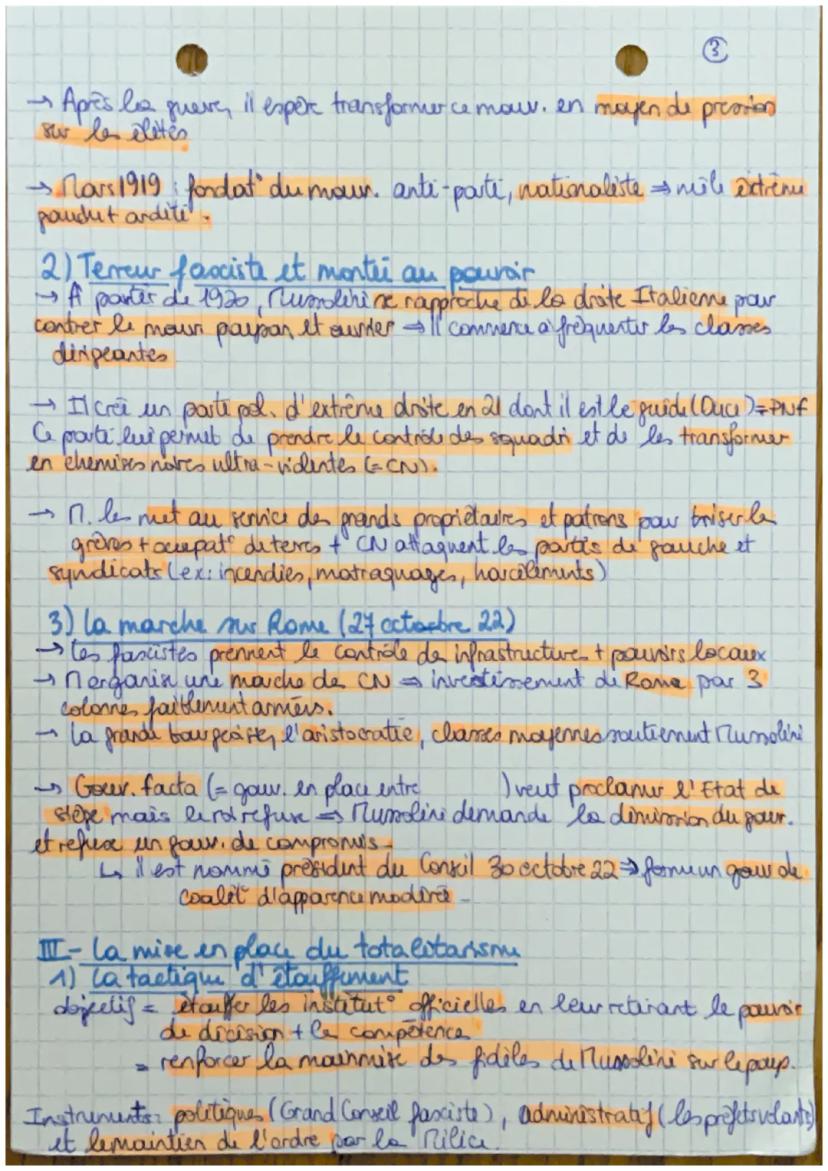 ③
→ Après la guerre, il espère transformer ce mouv. en moyen de pression
sur les élites
→ Mars 1919 : fondat° du mouv. anti-parti, nationaliste ⇒ mêle extrême
gauche et ardité.
2) Terreur fasciste et montée au pouvoir
→ A partir de 1920, Mussolini se rapproche de la droite Italienne pour
contrer le mouv paysan et ouvrier ⇒ Il commence à fréquenter les classes
dirigeantes
→ Il crée un parti pol. d'extrême droite en 21 dont il est le guide (Duce) = PNF
Ce parti lui permet de prendre le contrôle des squadri et de les transformer
en chemises noires ultra-violentes (= CN).
→ M. les met au service des grands propriétaires et patrons pour briser les
grèves + occupat° de terres + CN attaquent les partis de gauche et
syndicats (ex: incendies, matraquages, harcèlements)
3) La marche sur Rome (27 octobre 22)
→ Les fascistes prennent le contrôle de infrastructures + pouvoirs locaux
→ M organise une marche de CN ⇒ investissement de Rome par 3
colonnes faiblement armées.
→ La grande bourgeoisie, l'aristocratie, classes moyennes soutiennent Mussolini
→ Gouv. facta (= gouv. en place entre ) veut proclamer l'Etat de
siège mais le roi refuse ⇒ Mussolini demande la démission du gouv.
et refuse un gouv. de compromis.
↳ il est nommé président du Conseil 30 octobre 22 ⇒ forme un gouv de
coalit° d'apparence modérée.
III - La mise en place du totalitarisme
1) La tactique d'étouffement
objectif = étouffer les institut° officielles en leur retirant le pouvoir
de décision + la compétence
= renforcer la mainmise des fidèles de Mussolini sur le pays.
Instruments: politiques (Grand Conseil fasciste), administratif (les préfets volants)
et le maintien de l'ordre par la Milice.